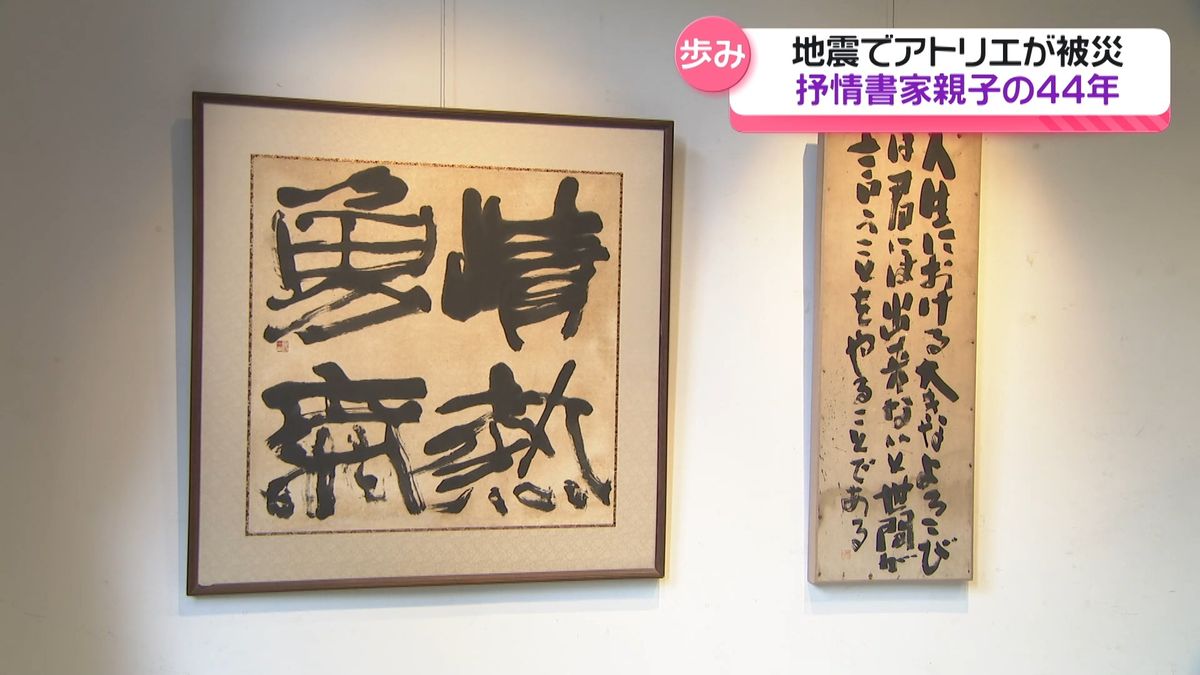 歩み
地震でアトリエが被災
抒情書家親子の44年
情熱
人生における大きなよろこび
は君には出来ないと世間が
言うことをやることである